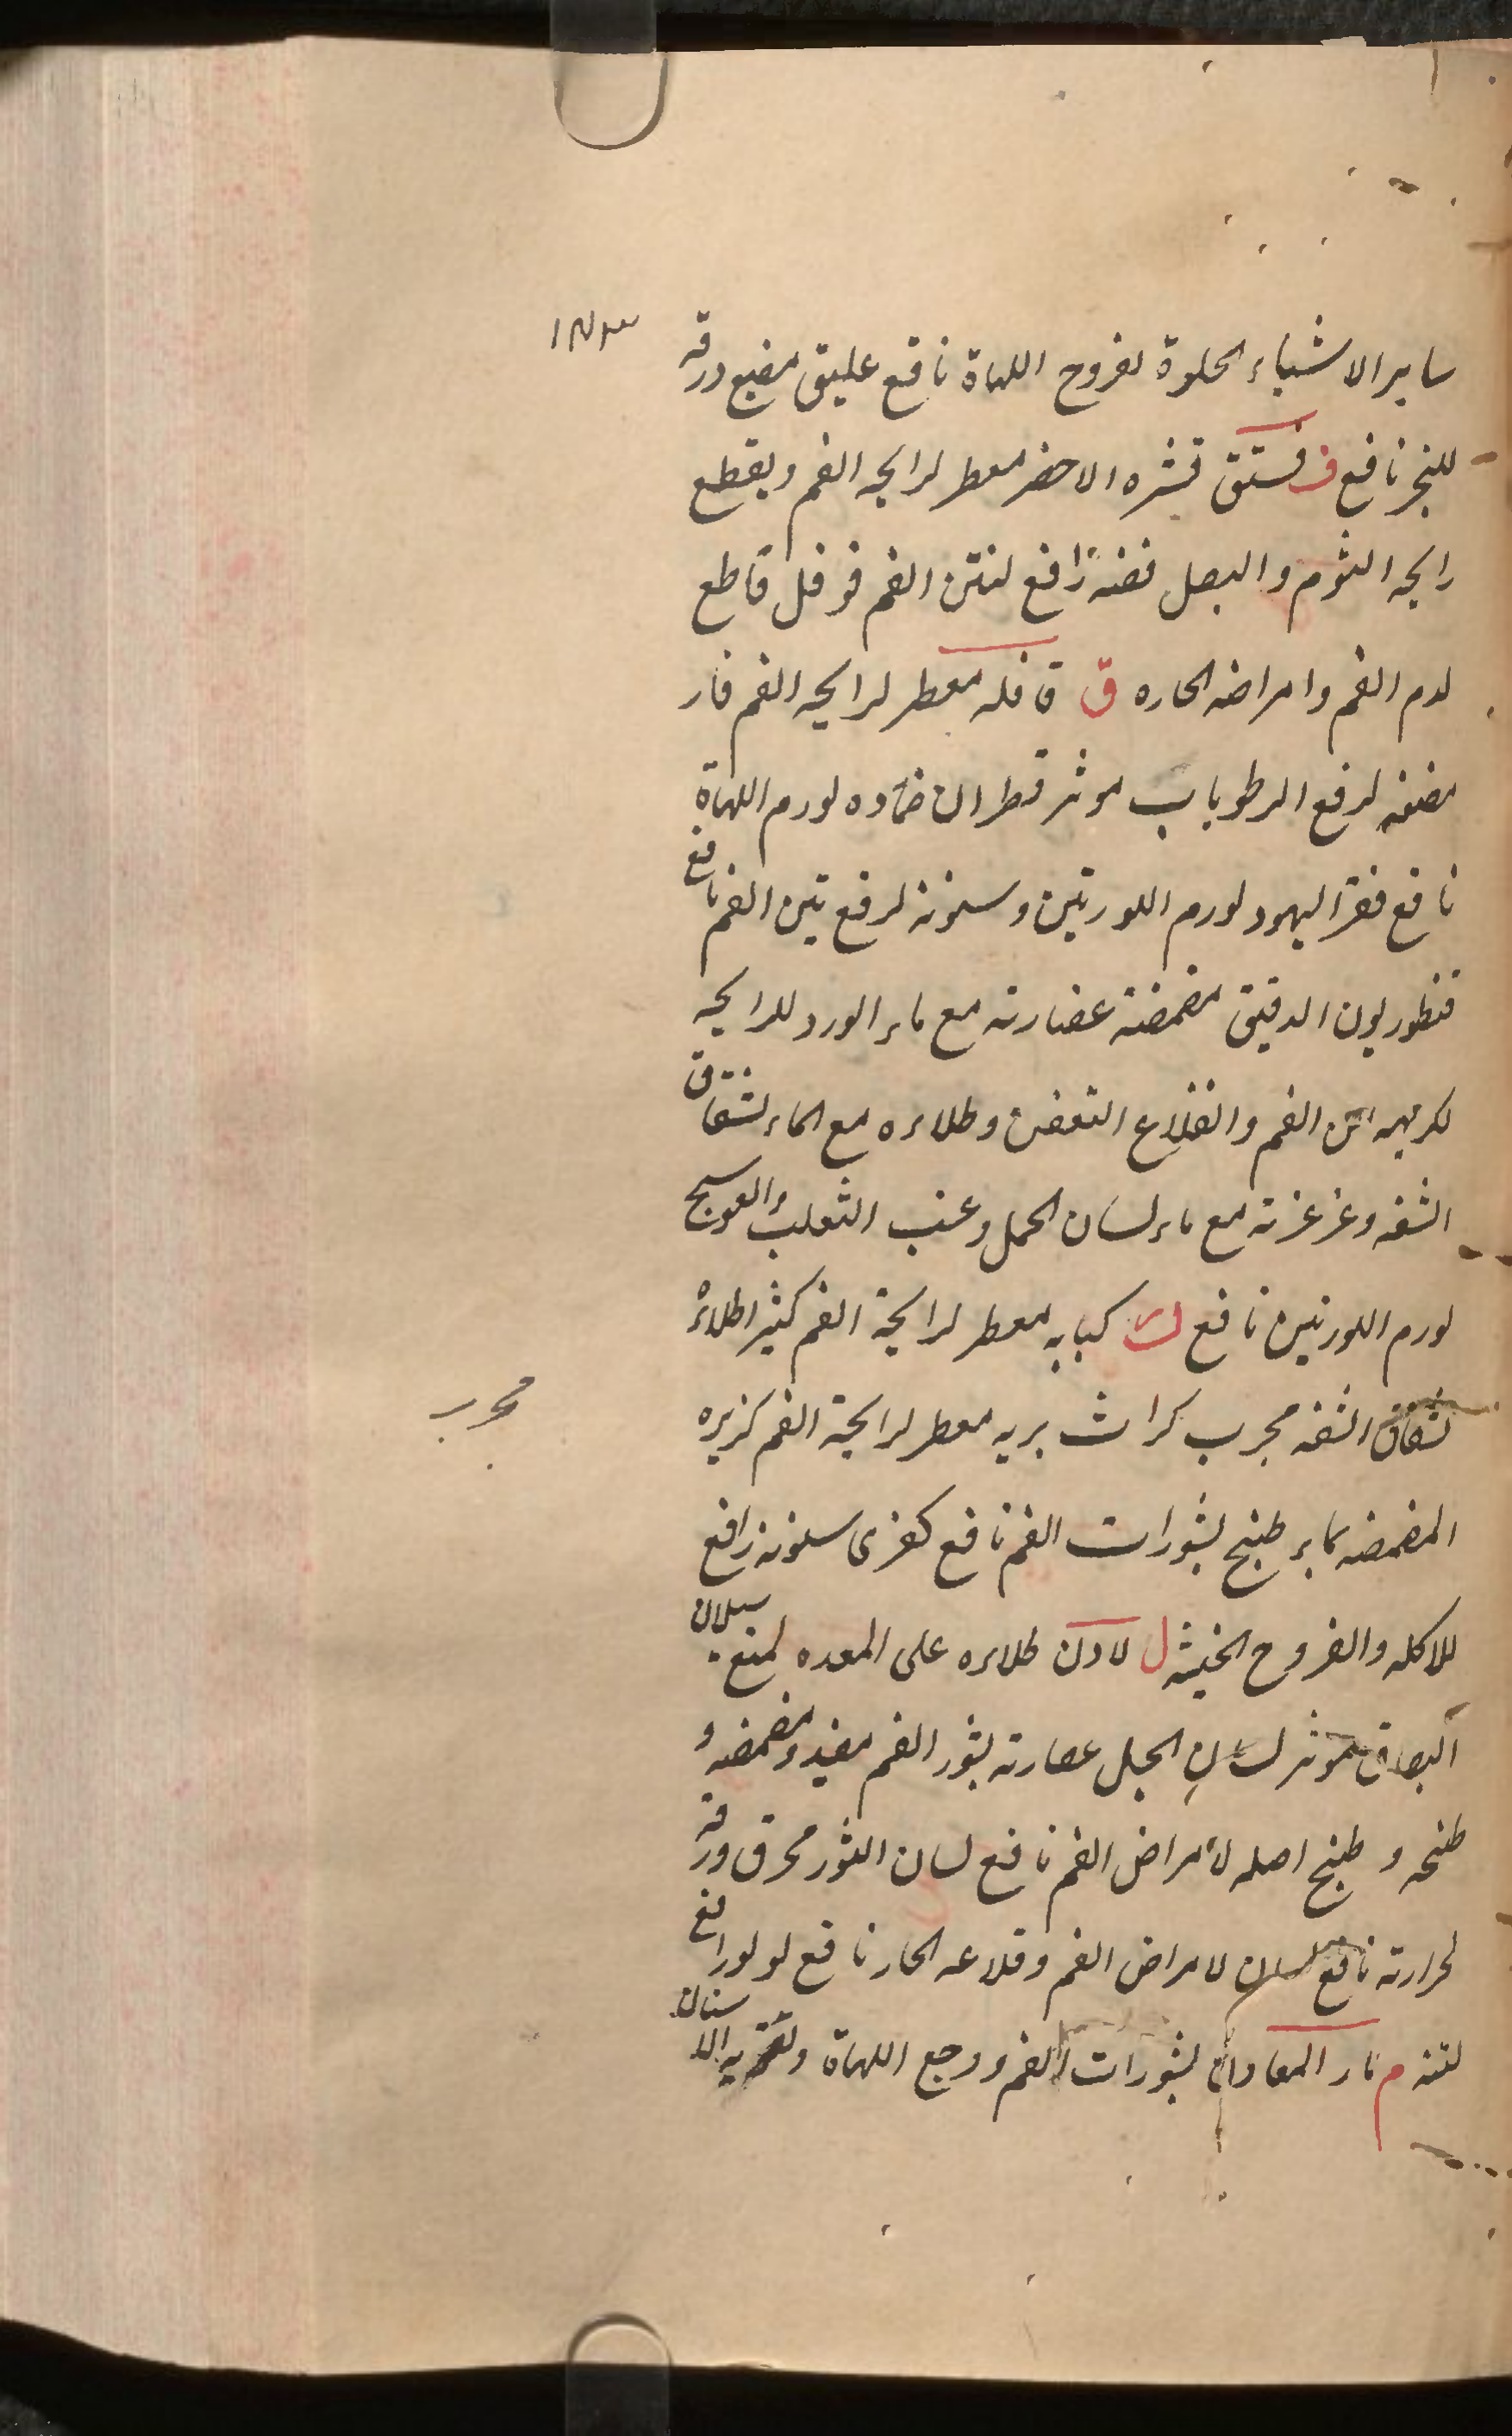 ساير الاشياء الحلوة لقروح اللهاة نافع عليق مضغ ورقه
للبخر نافع ف فستق قشره الاخضر معطر لرايحه الفم ويقطع
رايحه الثوم والبصل فضه رافع لنتن الفم فوفل قاطع
لدم الفم وامراضه الحاره ق قاقله معطر لرايحه الفم قار
مضغه لرفع الرطوبات موثر قطران ضماده لورم اللهاة
نافع قفر اليهود لورم اللوزتين وسنونه لرفع نتن الفم نافع
قنطوريون الدقيق مضمضة عصارته مع ماء الورد للرايحه
لكريهه الفم والقلاع التعفن وطلاءه مع الماء لشقاق
الشفه وغرغرته مع ماء لسان الحمل وعنب الثعلب والعوسج
لورم اللوزتين نافع ك كبابه معطر لرايحة الفم كثيرا طلاءً
لشقاق الشفه مجرب كراث بريه معطر لرايحة الفم كزبره
المضمضه بماء طبخ لبثورات الفم نافع كفرى سنونه رافع
للاكله والقروح الخبيثه ل لادن طلاءه على المعده لمنع سيلان
البصاق موثر لسان الحمل عصارته لبثور الفم مفيد ومضمضه و
طبخه و طبخ اصله لأمراض الفم نافع لسان الثور محرق ورقه
لحرارته نافع لامراض الفم وقلاعه الحار نافع لولو رافع
لنتنه م ماء لبثورات الفم ووجع اللهاة الاسنان
مجرب